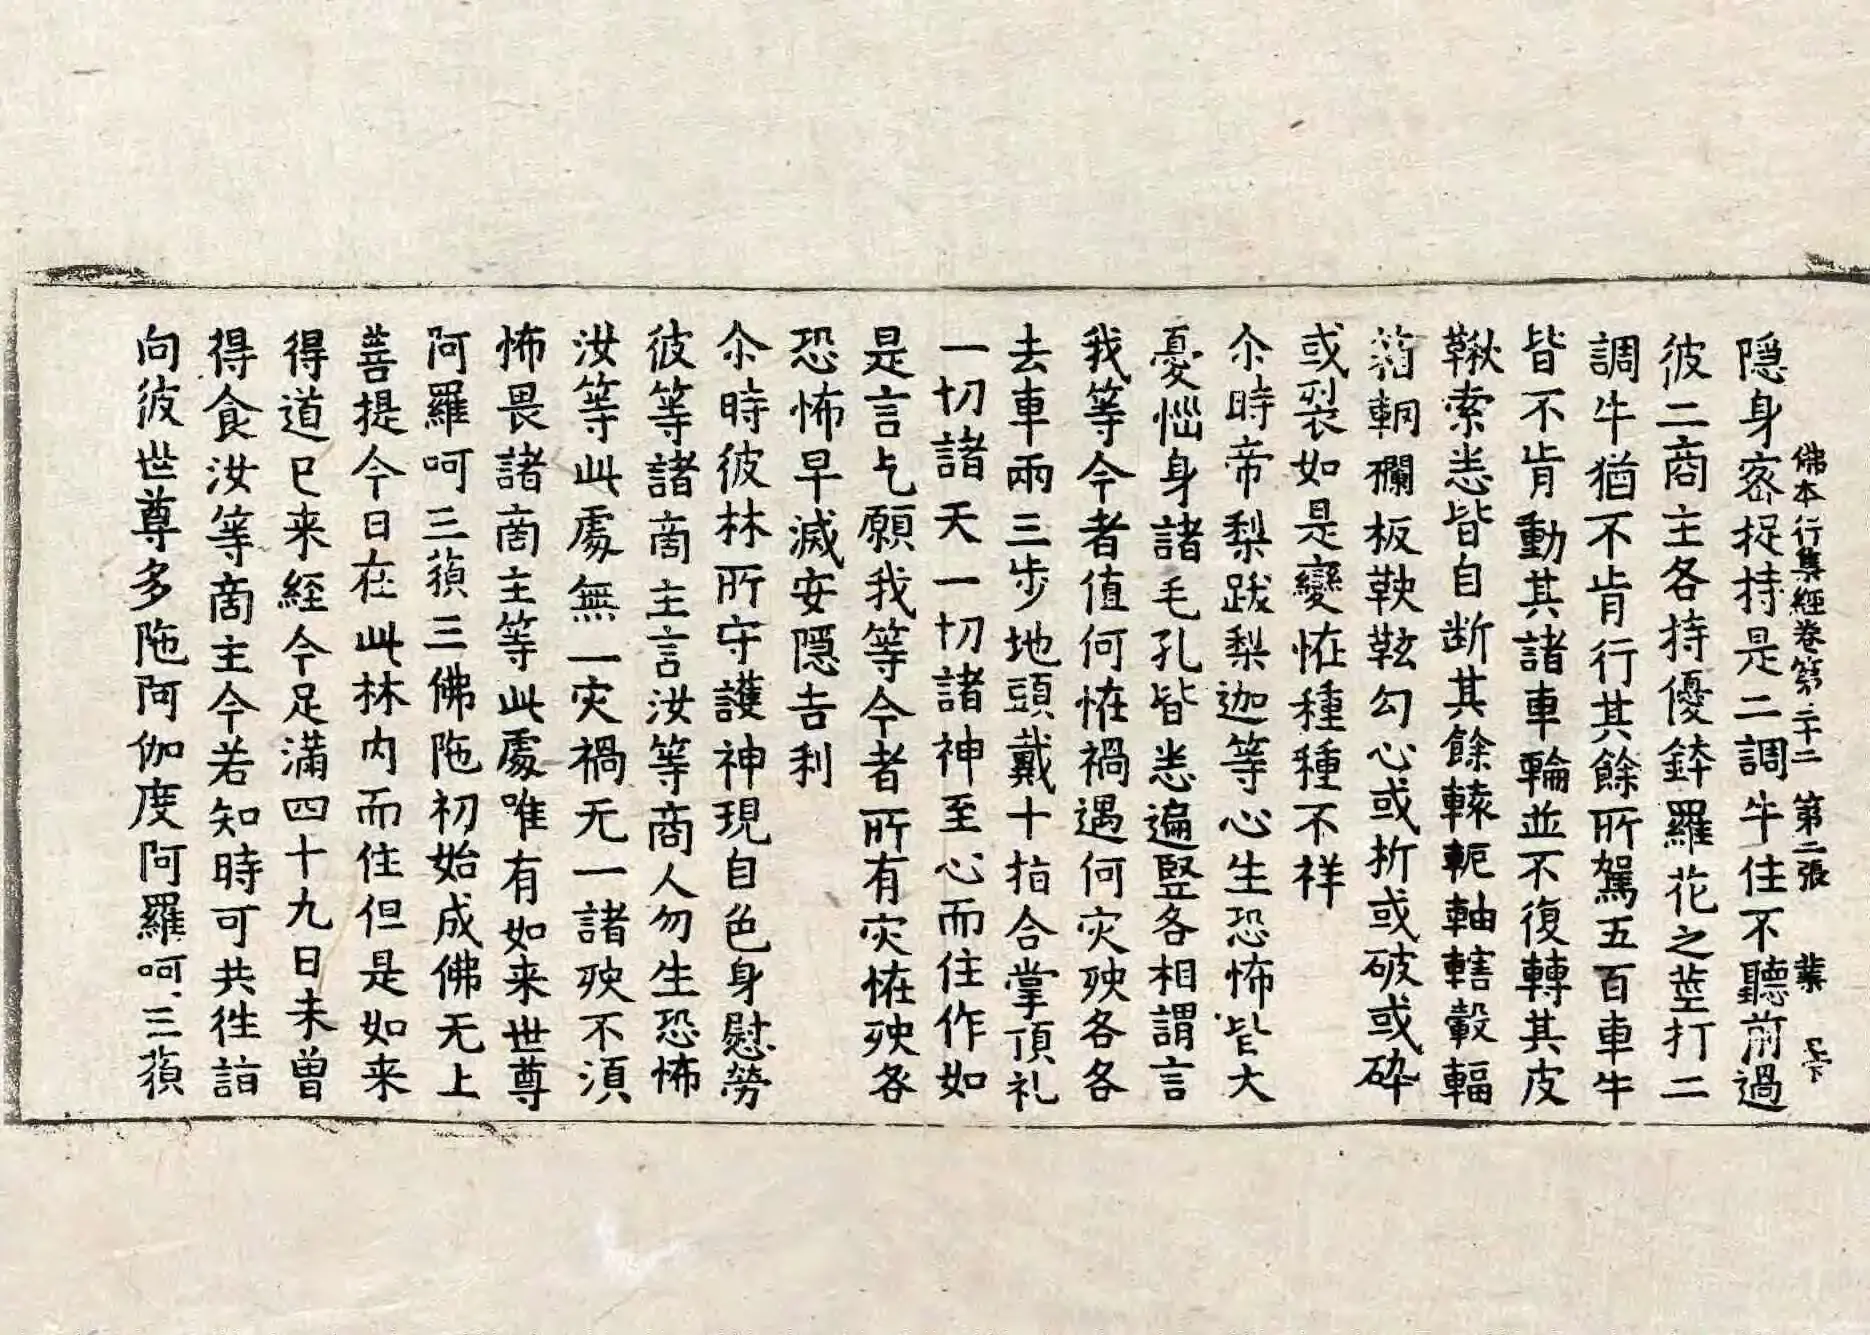 佛本行集經卷第三十二 第二張 業
隠身密捉持是二調牛住不聽前過
彼二商主各持優鉢羅花之莖打二
調牛猶不肯行其餘所駕五百車牛
皆不肯動其諸車輪並不復轉其皮
鞦索悉皆自断其餘轅軛軸轄轂輻
箱輞欄板鞅鞊勾心或折或破或碎
或裂如是變恠種種不祥
尒時帝梨跋梨迦等心生恐怖皆大
憂惱身諸毛孔皆悉遍竪各相謂言
我等今者值何恠禍遇何灾殃各各
去車兩三步地頭戴十指合掌頂礼
一切諸天一切諸神至心而住作如
是言乞願我等今者所有灾恠殃咎
恐怖早滅安隠吉利
尒時彼林所守護神現自色身慰勞
彼等諸商主言汝等商人勿生恐怖
汝等此處無一灾禍无一諸殃不湏
怖畏諸商主等此處唯有如来世尊
阿羅呵三藐三佛陁初始成佛无上
菩提今日在此林内而住但是如来
得道已来經今足滿四十九日未曾
得食汝等商主今若知時可共徃詣
向彼世尊多陁阿伽度阿羅呵三藐